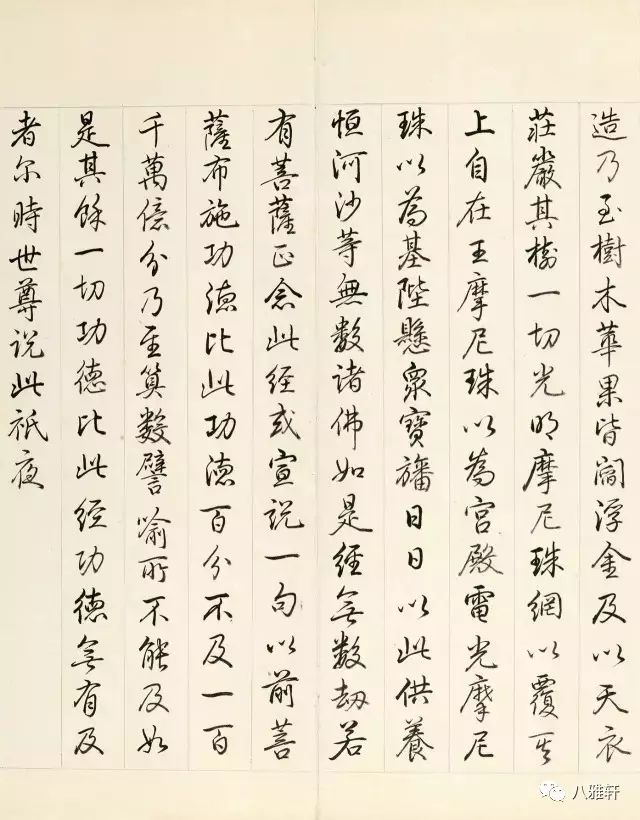 造乃至樹木華果皆閻浮金及以天衣
莊嚴其樹一切光明摩尼珠網以覆其
上自在王摩尼珠以為宮殿電光摩尼
珠以為基陛懸衆寶旛日日以此供養
恒河沙等無數諸佛如是經無數劫若
有菩薩正念此經或宣説一句以前菩
薩布施功德比此功德百分不及一百
千萬億分乃至算數譬喻所不能及如
是其餘一切功德比此經功德無有及
者尔時世尊説此祇夜
八雅轩